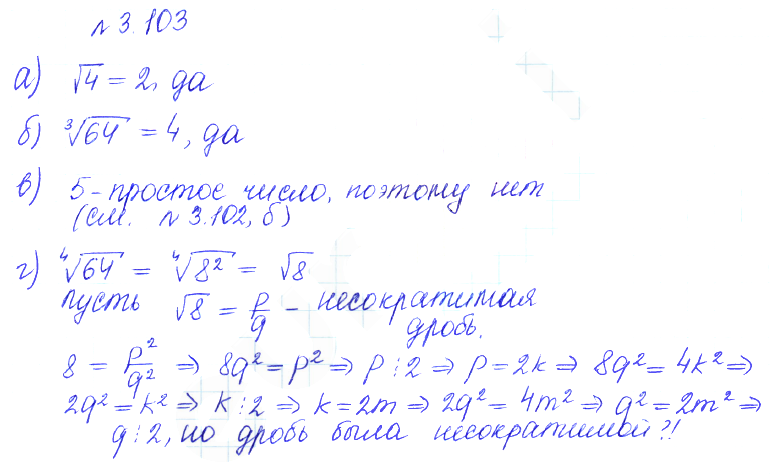 № 3.103
а) √4 = 2, да
б) ³√64 = 4, да
в) 5 - простое число, поэтому нет
(см. № 3.102, б)
г) ⁴√64 = ⁴√8² = √8
пусть √8 = p/q - несократимая
дробь.
8 = p²/q² ⇒ 8q² = p² ⇒ p ⋮ 2 ⇒ p = 2k ⇒ 8q² = 4k² ⇒
2q² = k² ⇒ k ⋮ 2 ⇒ k = 2m ⇒ 2q² = 4m² ⇒ q² = 2m² ⇒
q ⋮ 2, но дробь была несократимой?!